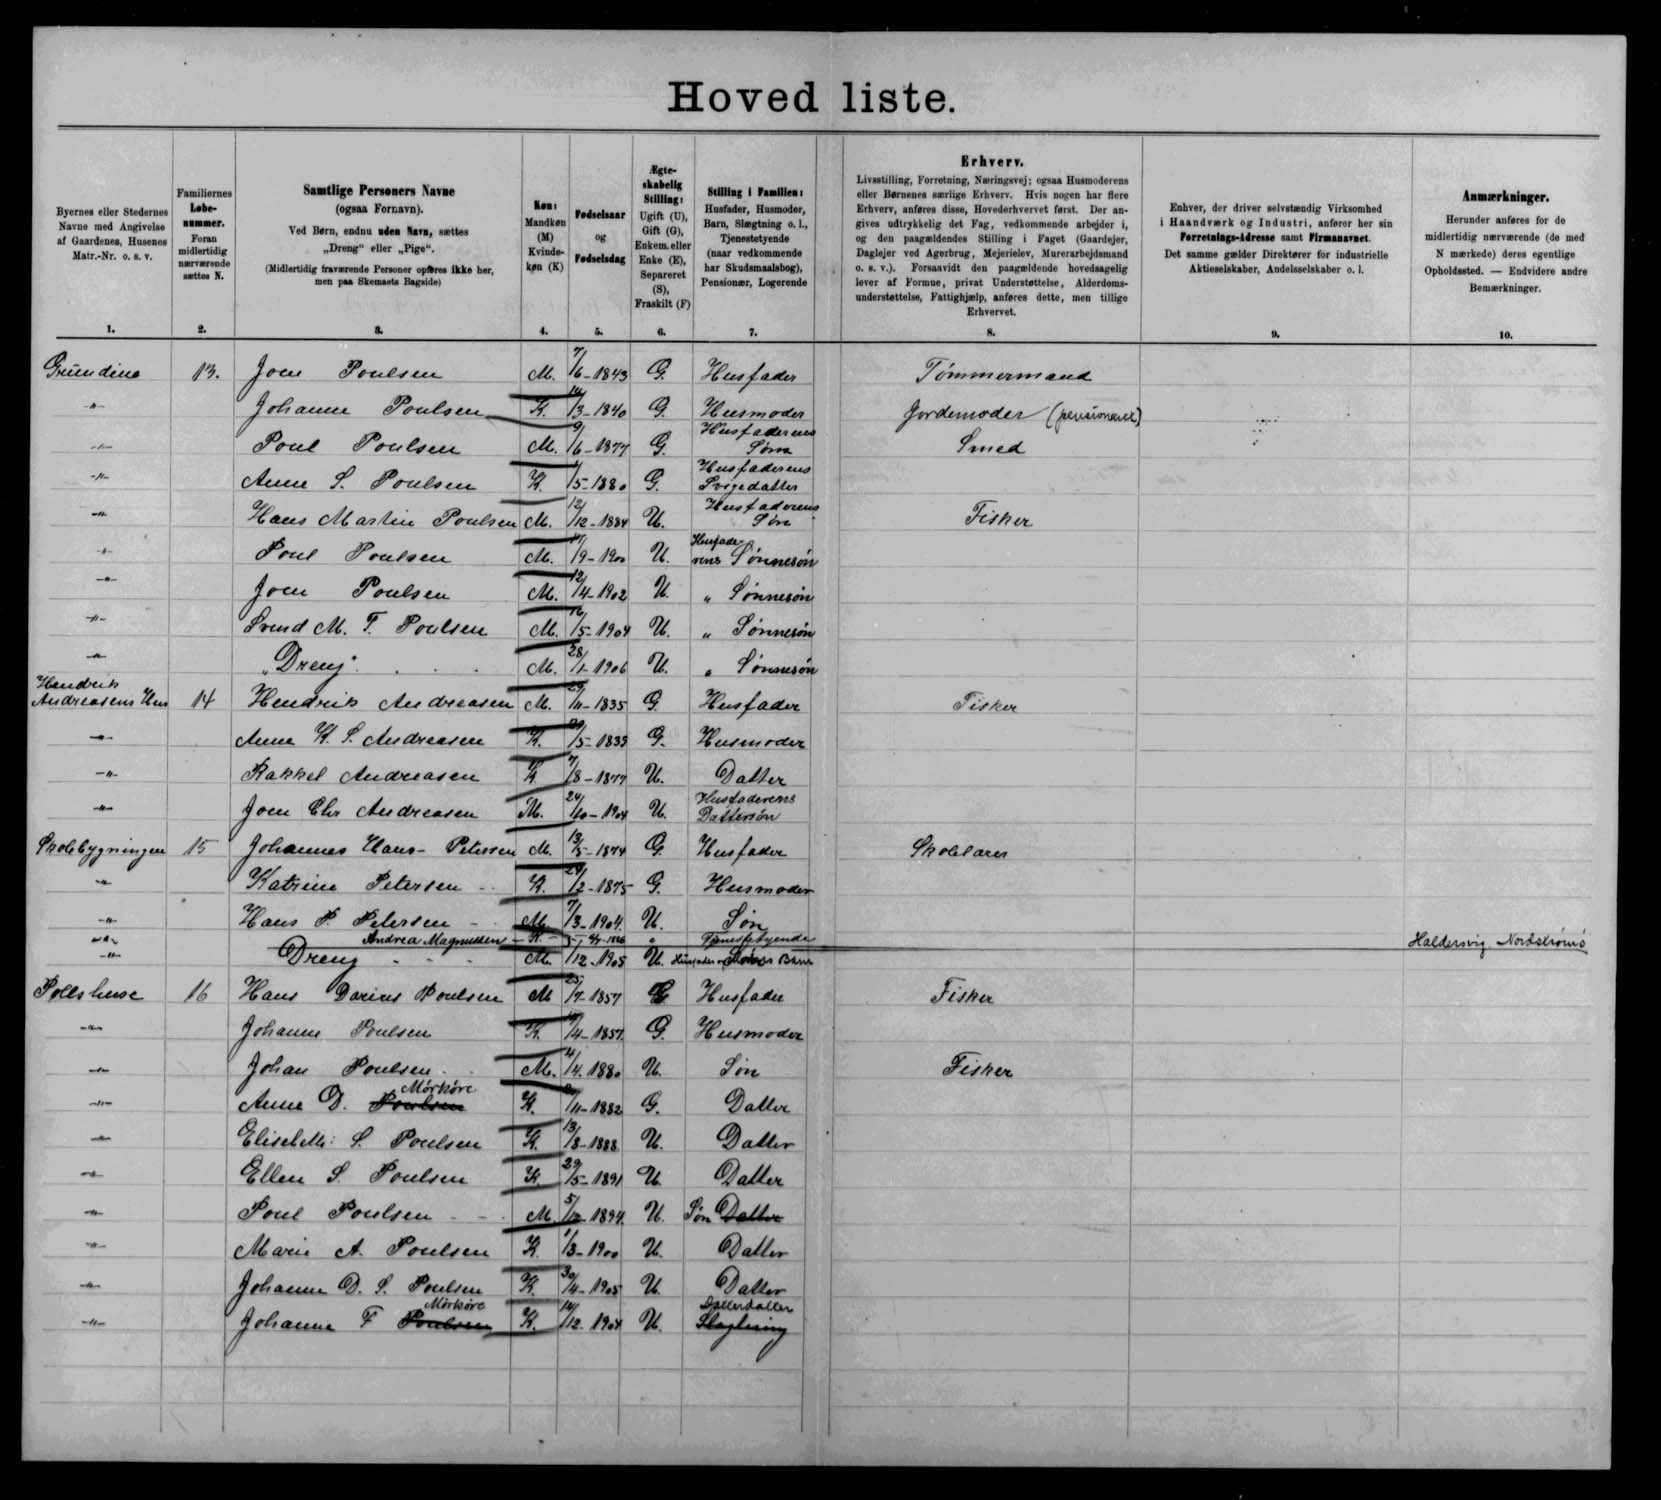 Hoved liste.
Byernes eller Stedernes Navne med Angivelse af Gaardenes, Husenes Matr.-Nr. o. s. v.
Familiernes Løbenummer. Foran midlertidig nærværende sættes N.
Samtlige Personers Navne
(ogsaa Fornavn).
Ved Børn, endnu uden Navn, sættes „Dreng" eller „Pige".
(Midlertidig fraværende Personer opføres ikke her, men paa Skemaets Bagside)
Køn: Mandkøn (M) Kvindekøn (K)
Fødselsaar og Fødselsdag
Ægteskabelig Stilling: Ugift (U), Gift (G), Enkem. eller Enke (E), Separeret (S), Fraskilt (F)
Stilling i Familien: Husfader, Husmoder, Barn, Slægtning o. l., Tjenestetyende (naar vedkommende har Skudsmaalsbog), Pensionær, Logerende
Erhverv.
Livsstilling, Forretning, Næringsvej; ogsaa Husmoderens eller Børnenes særlige Erhverv. Hvis nogen har flere Erhverv, anføres disse, Hovederhvervet først. Der angives udtrykkelig det Fag, vedkommende arbejder i, og den paagældendes Stilling i Faget (Gaardejer, Daglejer ved Agerbrug, Mejerielev, Murerarbejdsmand o. s. v.). Forsaavidt den paagældende hovedsagelig lever af Formue, privat Understøttelse, Alderdomsunderstøttelse, Fattighjælp, anføres dette, men tillige Erhvervet.
Enhver, der driver selvstændig Virksomhed i Haandværk og Industri, anfører her sin Forretnings-Adresse samt Firmanavnet. Det samme gælder Direktører for industrielle Aktieselskaber, Andelsselskaber o. l.
Anmærkninger.
Herunder anføres for de midlertidig nærværende (de med N mærkede) deres egentlige Opholdssted. — Endvidere andre Bemærkninger.
1. 2. 3. 4. 5. 6. 7. 8. 9. 10.
13. Joen Poulsen M. 7/6-1843 G. Husfader Tømmermand
-"- Johanne Poulsen K. 14/3-1840 G. Husmoder Jordemoder (pensioneret)
-"- Poul Poulsen M. 9/6-1877 G. Husfaderens Søn Smed
-"- Anne S. Poulsen K. /5-1880 G. Husfaderens Svigedatter
-"- Hans Martin Poulsen M. 12/12-1884 U. Husfaderens Søn Fisker
-"- Poul Poulsen M. /9-1900 U. Husfaderens Sønnesøn
-"- Joen Poulsen M. 12/4-1902 U. " Sønnesøn
-"- Svend M. F. Poulsen M. 16/5-1904 U. " Sønnesøn
-"- „Dreng". M. 28/1-1906 U. " Sønnesøn
Hendrik Andreasens Hus 14 Hendrik Andreasen M. /11-1835 G. Husfader Fisker
-"- Anne K. S. Andreasen K. /5-1833 G. Husmoder
-"- Rakkel Andreasen K. 7/8-1877 U. Datter
-"- Joen Chr Andreasen M. 24/10-1904 U. Husfaderens Dattersøn
Skolebygningen 15 Johannes Hans- Petersen M. 13/5-1874 G. Husfader Skolelærer
-"- Katrine Petersen K. 24/2-1875 G. Husmoder
-"- Hans P. Petersen M. 7/3-1904. U. Søn
-"- Andrea Magnussen K. " Tjenestetyende Haldersvig Nordstrømö
-"- Dreng M. /12-1905 U. Barn
16 Hans Darius Poulsen M 25/7-1857 G Husfader Fisker
-"- Johanne Poulsen K. /4-1857. G. Husmoder
-"- Johan Poulsen M. 4/4. 1880 U. Søn Fisker
-"- Anne D. Poulsen Mörköre K. /11-1882 G. Datter
-"- Elisebeth S. Poulsen K. 13/8-1888. U. Datter
-"- Ellen S. Poulsen K. 29/5-1891 U. Datter
-"- Poul Poulsen M. 5/12 1894. U. Søn Datter
-"- Marin A. Poulsen K. 1/3-1900 U. Datter
-"- Johanne D. S. Poulsen K. 30/4-1905 U. Datter
-"- Johanne F Poulsen Mörköre K. 14/12. 1904 U. Datterdatter Slægtning